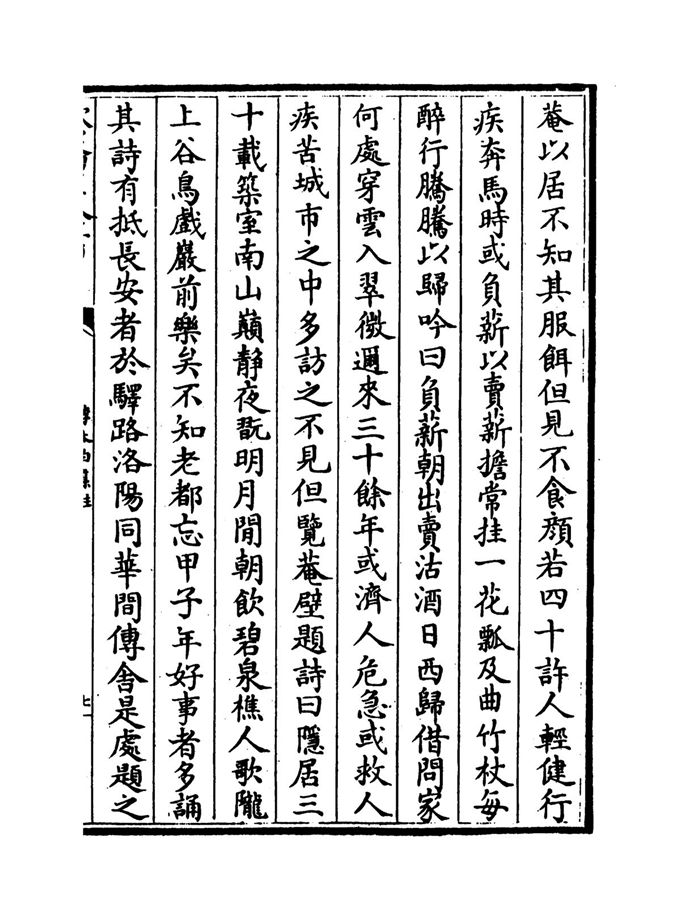 菴以居不知其服餌但見不食顔若四十許人輕健行
疾奔馬時或負薪以賣薪擔常挂一花瓢及曲竹杖每
醉行騰騰以歸吟曰負薪朝出賣沽酒日西歸借問家
何處穿雲入翠微邇來三十餘年或濟人危急或救人
疾苦城市之中多訪之不見但覽菴壁題詩曰隱居三
十載築室南山巔靜夜翫明月閒朝飲碧泉樵人歌隴
上谷鳥戲巖前樂矣不知老都忘甲子年好事者多誦
其詩有抵長安者於驛路洛陽同華間傳舍是處題之